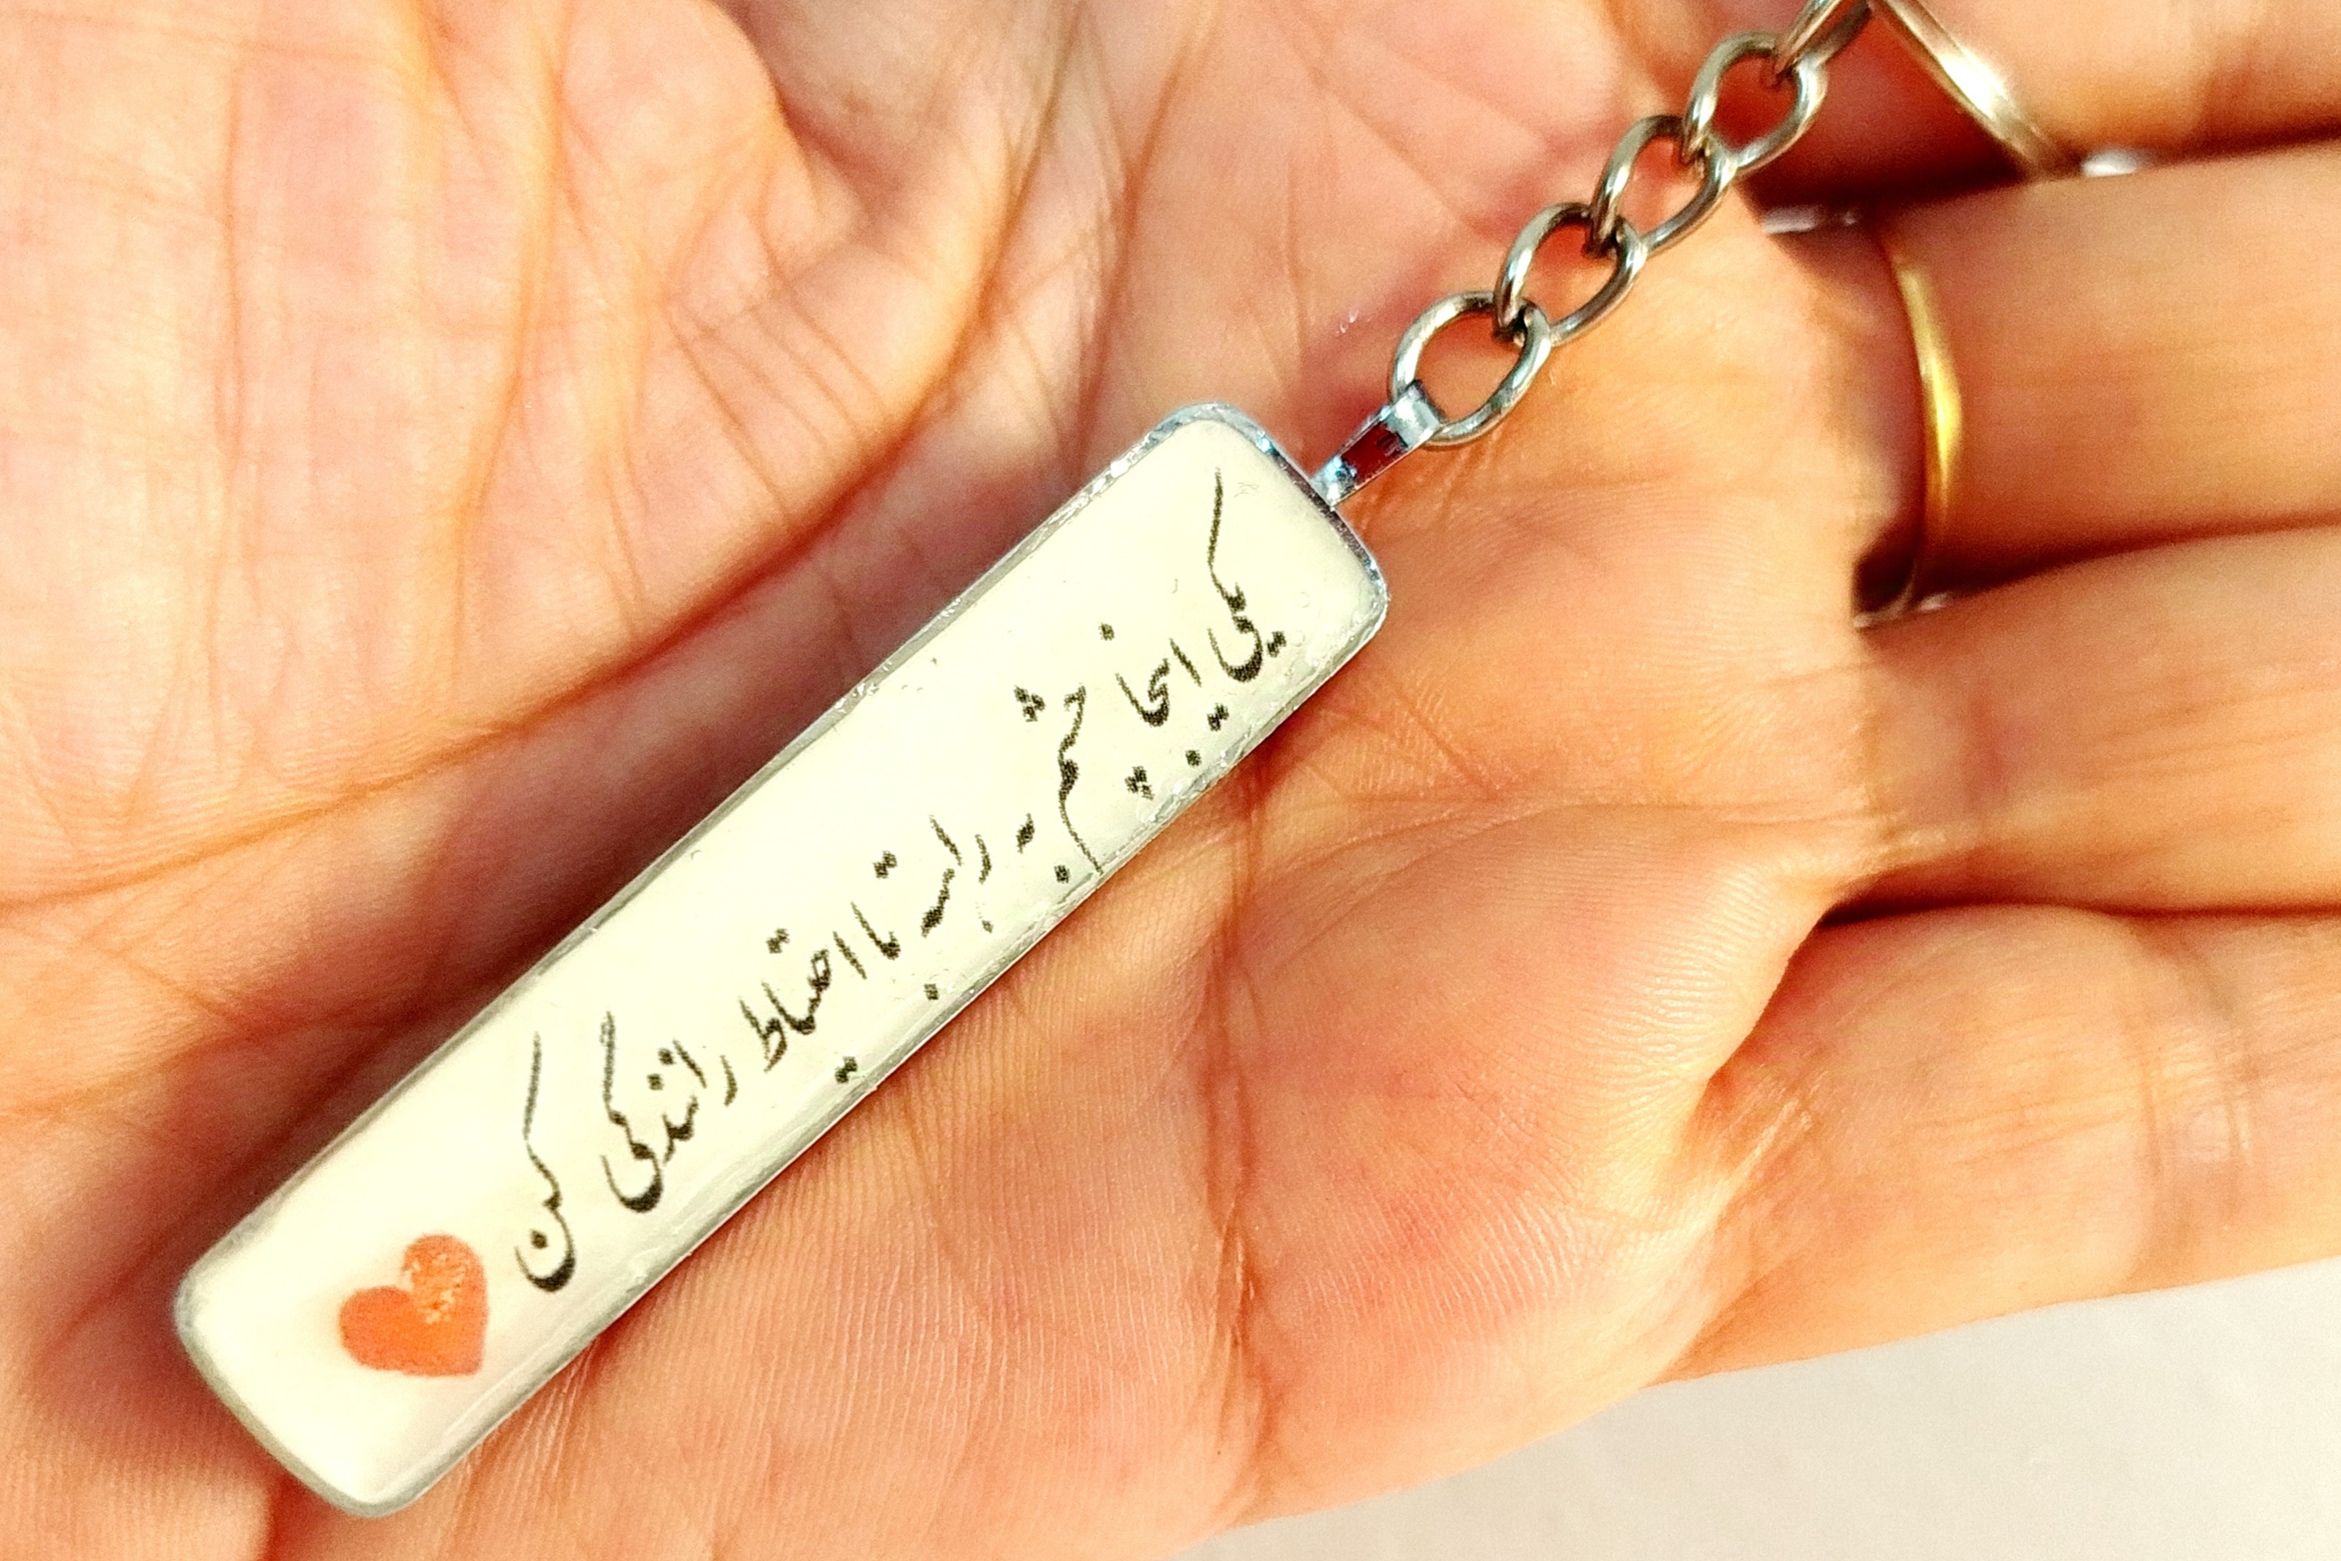 یکی اینجا چشم به راهته با احتیاط رانندگی کن